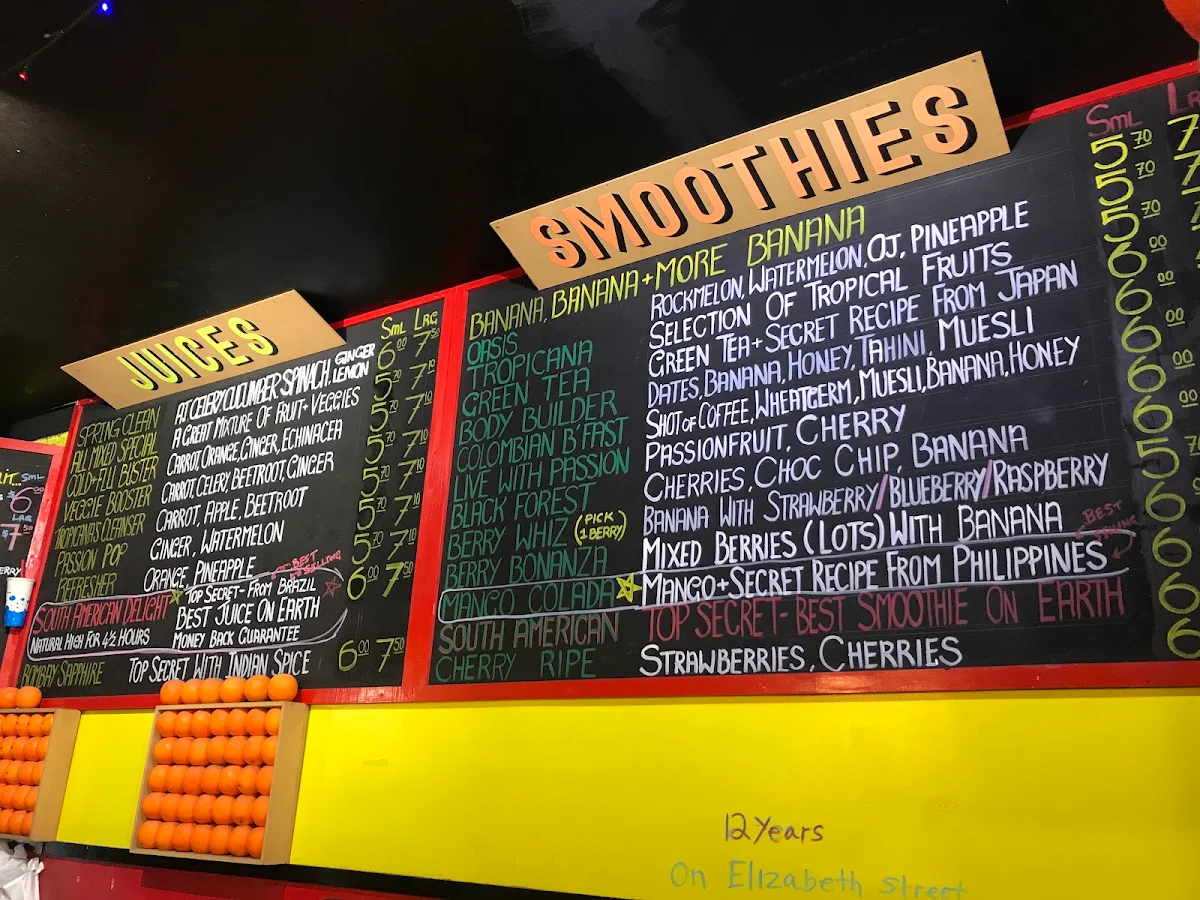 JUICES
SML LRG
SPRING CLEAN APPLE, CELERY, CUCUMBER, SPINACH, GINGER, LEMON 6.00 7.50
ALL MIXED SPECIAL A GREAT MIXTURE OF FRUIT+VEGGIES
COLD+FLU BUSTER CARROT, ORANGE, GINGER, ECHINACEA
VEGGIE BOOSTER CARROT, CELERY, BEETROOT, GINGER
TROPICANA'S CLEANSER CARROT, APPLE, BEETROOT
PASSION POP GINGER, WATERMELON
REFRESHER ORANGE, PINEAPPLE
BEST SELLING
SOUTH AMERICAN DELIGHT TOP SECRET-FROM BRAZIL 6.00 7.50
BEST JUICE ON EARTH
NATURAL HIGH FOR 4½ HOURS MONEY BACK GUARANTEE
BOMBAY SAPPHIRE TOP SECRET WITH INDIAN SPICE 6.00 7.50
SMOOTHIES
SML LRG
BANANA, BANANA+MORE BANANA 5.70
OASIS ROCKMELON, WATERMELON, OJ, PINEAPPLE 5.70
TROPICANA SELECTION OF TROPICAL FRUITS 5.70
GREEN TEA GREEN TEA+SECRET RECIPE FROM JAPAN 6.00
BODY BUILDER DATES, BANANA, HONEY, TAHINI MUESLI
COLOMBIAN B'FAST SHOT OF COFFEE, WHEATGERM, MUESLI, BANANA, HONEY
LIVE WITH PASSION PASSIONFRUIT, CHERRY
BLACK FOREST CHERRIES, CHOC CHIP, BANANA
BERRY WHIZ (PICK 1 BERRY) BANANA WITH STRAWBERRY/BLUEBERRY/RASPBERRY
BERRY BONANZA MIXED BERRIES (LOTS) WITH BANANA
MANGO COLADA MANGO+SECRET RECIPE FROM PHILIPPINES
SOUTH AMERICAN TOP SECRET-BEST SMOOTHIE ON EARTH
CHERRY RIPE STRAWBERRIES, CHERRIES
12 Years
On Elizabeth street